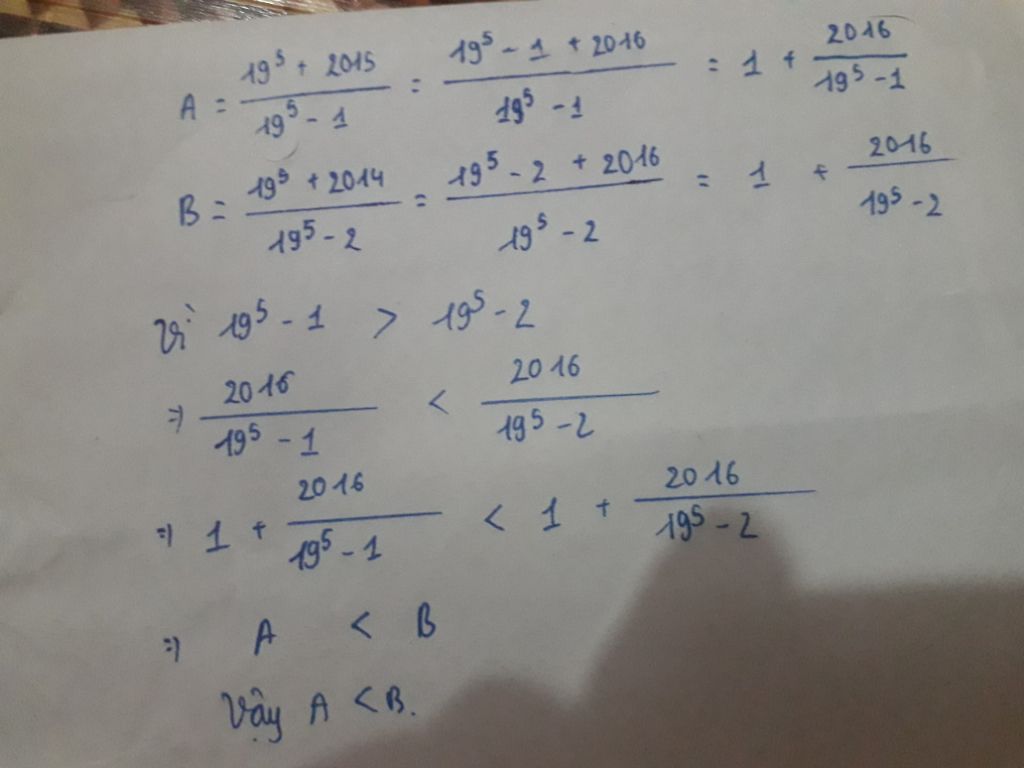 A = \frac{19^5 + 2015}{19^5 - 1} = \frac{19^5 - 1 + 2016}{19^5 - 1} = 1 + \frac{2016}{19^5 - 1}
B = \frac{19^5 + 2014}{19^5 - 2} = \frac{19^5 - 2 + 2016}{19^5 - 2} = 1 + \frac{2016}{19^5 - 2}
Vì 19^5 - 1 > 19^5 - 2
=> \frac{2016}{19^5 - 1} < \frac{2016}{19^5 - 2}
=> 1 + \frac{2016}{19^5 - 1} < 1 + \frac{2016}{19^5 - 2}
=> A < B
Vậy A < B.